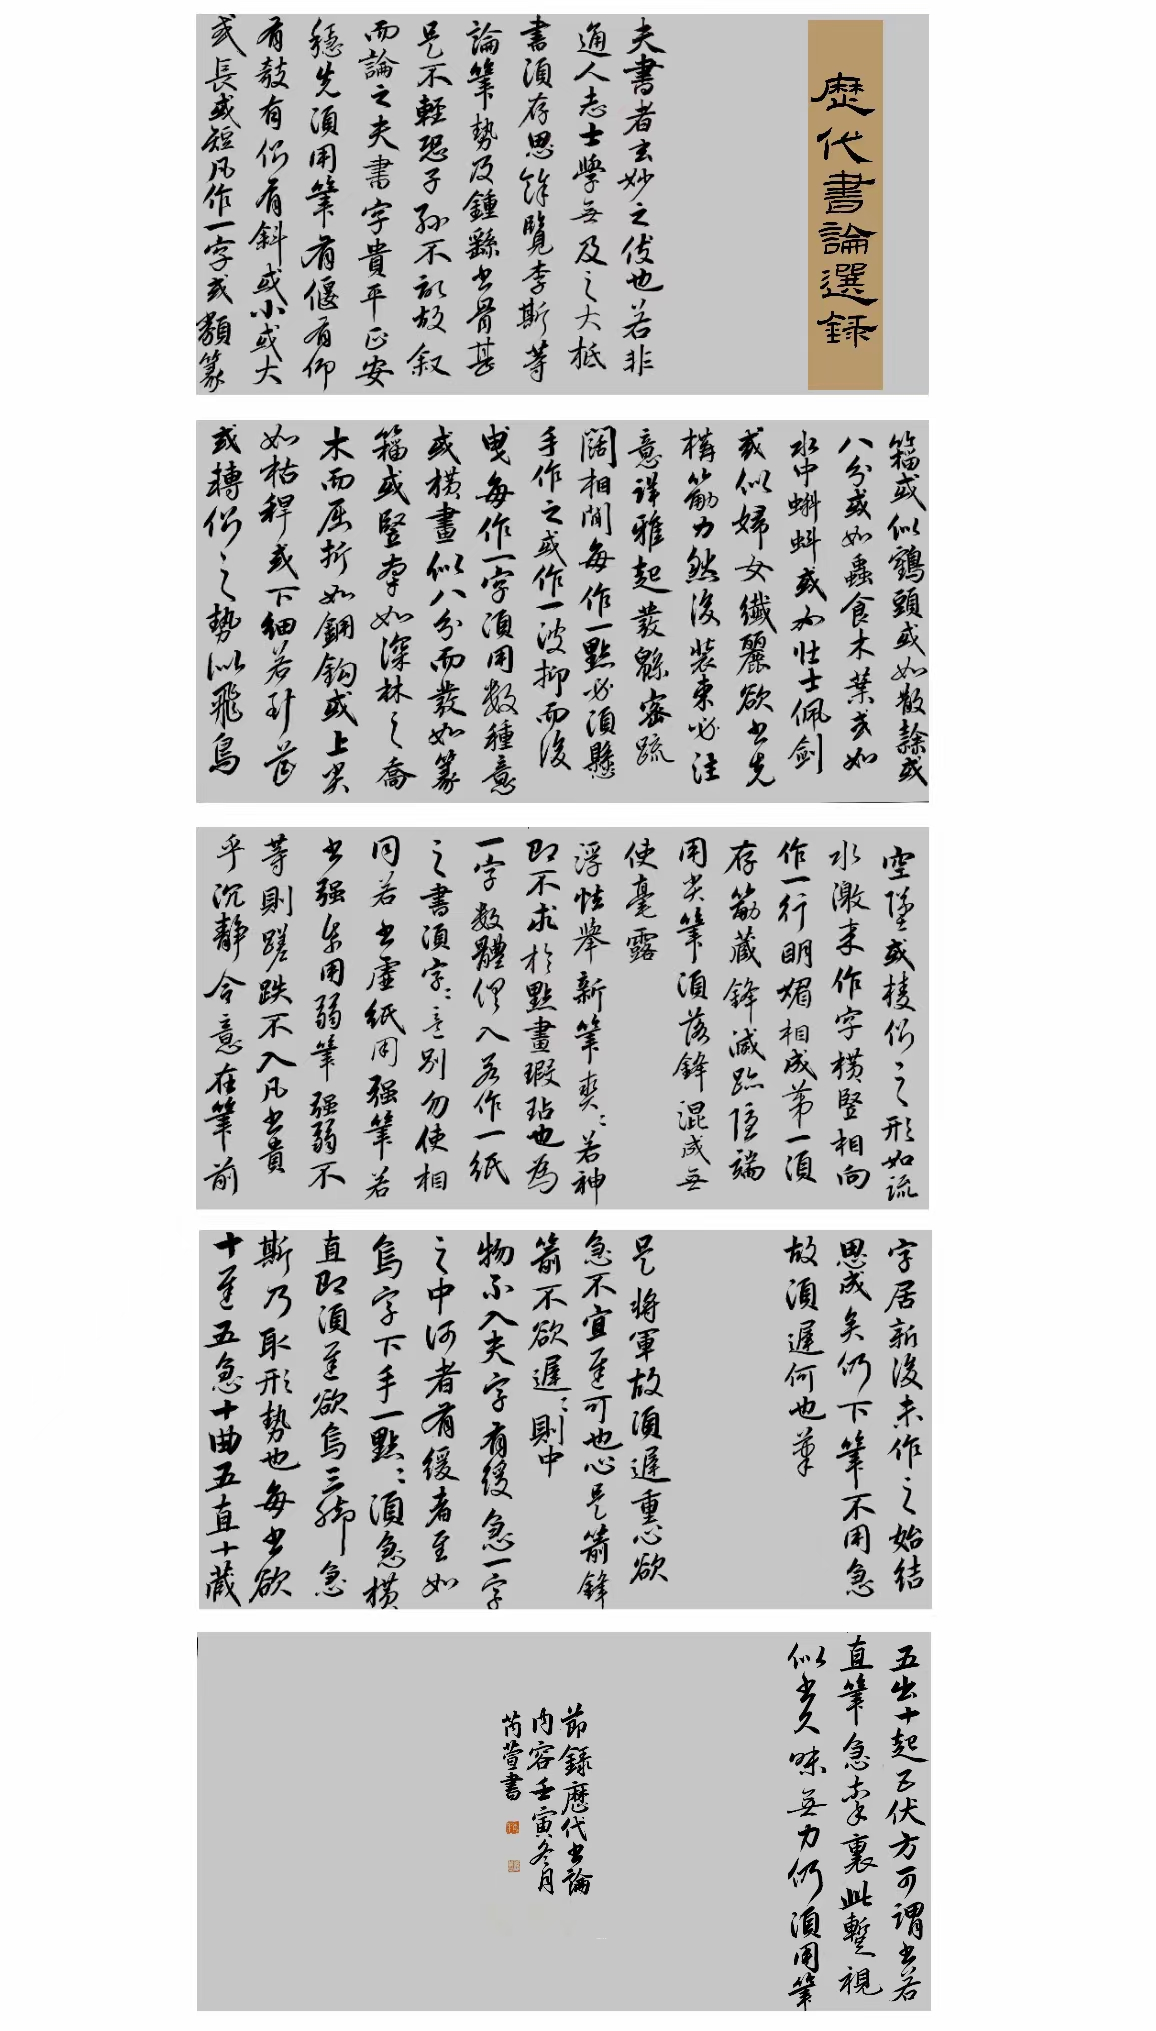 歷代書論選錄
夫書者玄妙之伎也若非
通人志士學無及之大柢
書須存思余覽李斯等
論筆勢及鍾繇書骨甚
是不輕恐子孫不記故叙
而論之夫書字貴平正安
穩先須用筆有偃有仰
有攲有側有斜或小或大
或長或短凡作一字或類篆
籀或似鵠頭或如散隸或
八分或如蟲食木葉或如
水中蝌蚪或如壮士佩劍
或似婦女纖麗欲書先
構筋力然後裝束必注
意詳雅起發緜密疏
闊相間每作一點必須懸
手作之或作一波抑而後
曳每作一字須用数種意
或横畫似八分而發如篆
籀或竪牽如深林之喬
木而屈折如鋼鈎或上尖
如枯稈或下細若針芒
或轉側之勢似飛鳥
空墜或棱側之形如流
水激来作字横竪相向
作一行明媚相成第一須
存筋藏鋒滅跡隱端
用尖筆須落鋒混成無
使毫露
浮怯舉新筆爽爽若神
即不求於點畫瑕玷也為
一字数體俱入若作一紙
之書須字字意别勿使相
同若書虚紙用强筆若
書强紙用弱筆强弱不
等則蹉跌不入凡書貴
乎沉静令意在筆前
字居新後未作之始結
思成矣仍下筆不用急
故須遲何也筆
是將軍故須遲重心欲
急不宜遲可也心是箭鋒
箭不欲遲遲則中
物不入夫字有緩急一字
之中何者有緩者至如
烏字下手一點點須急横
直即須遲欲烏三脚急
斯乃取形勢也每書欲
十遲五急十曲五直十藏
五出十起五伏方可謂書若
直筆急牽裏此暫視
似書久味無力仍須用筆
節錄歷代書論
内容壬寅冬月
芮萱書